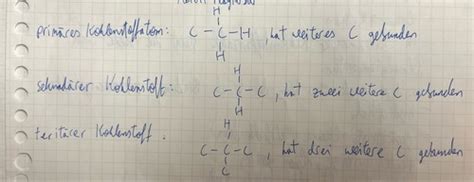 H
primäres Kohlenstoffatom: C-C-H, hat weiteres C gebunden
H
H
sekundärer Kohlenstoff: C-C-C, hat zwei weitere C gebunden
H
H
teritärer Kohlenstoff. C-C-C, hat drei weitere C gebunden
C